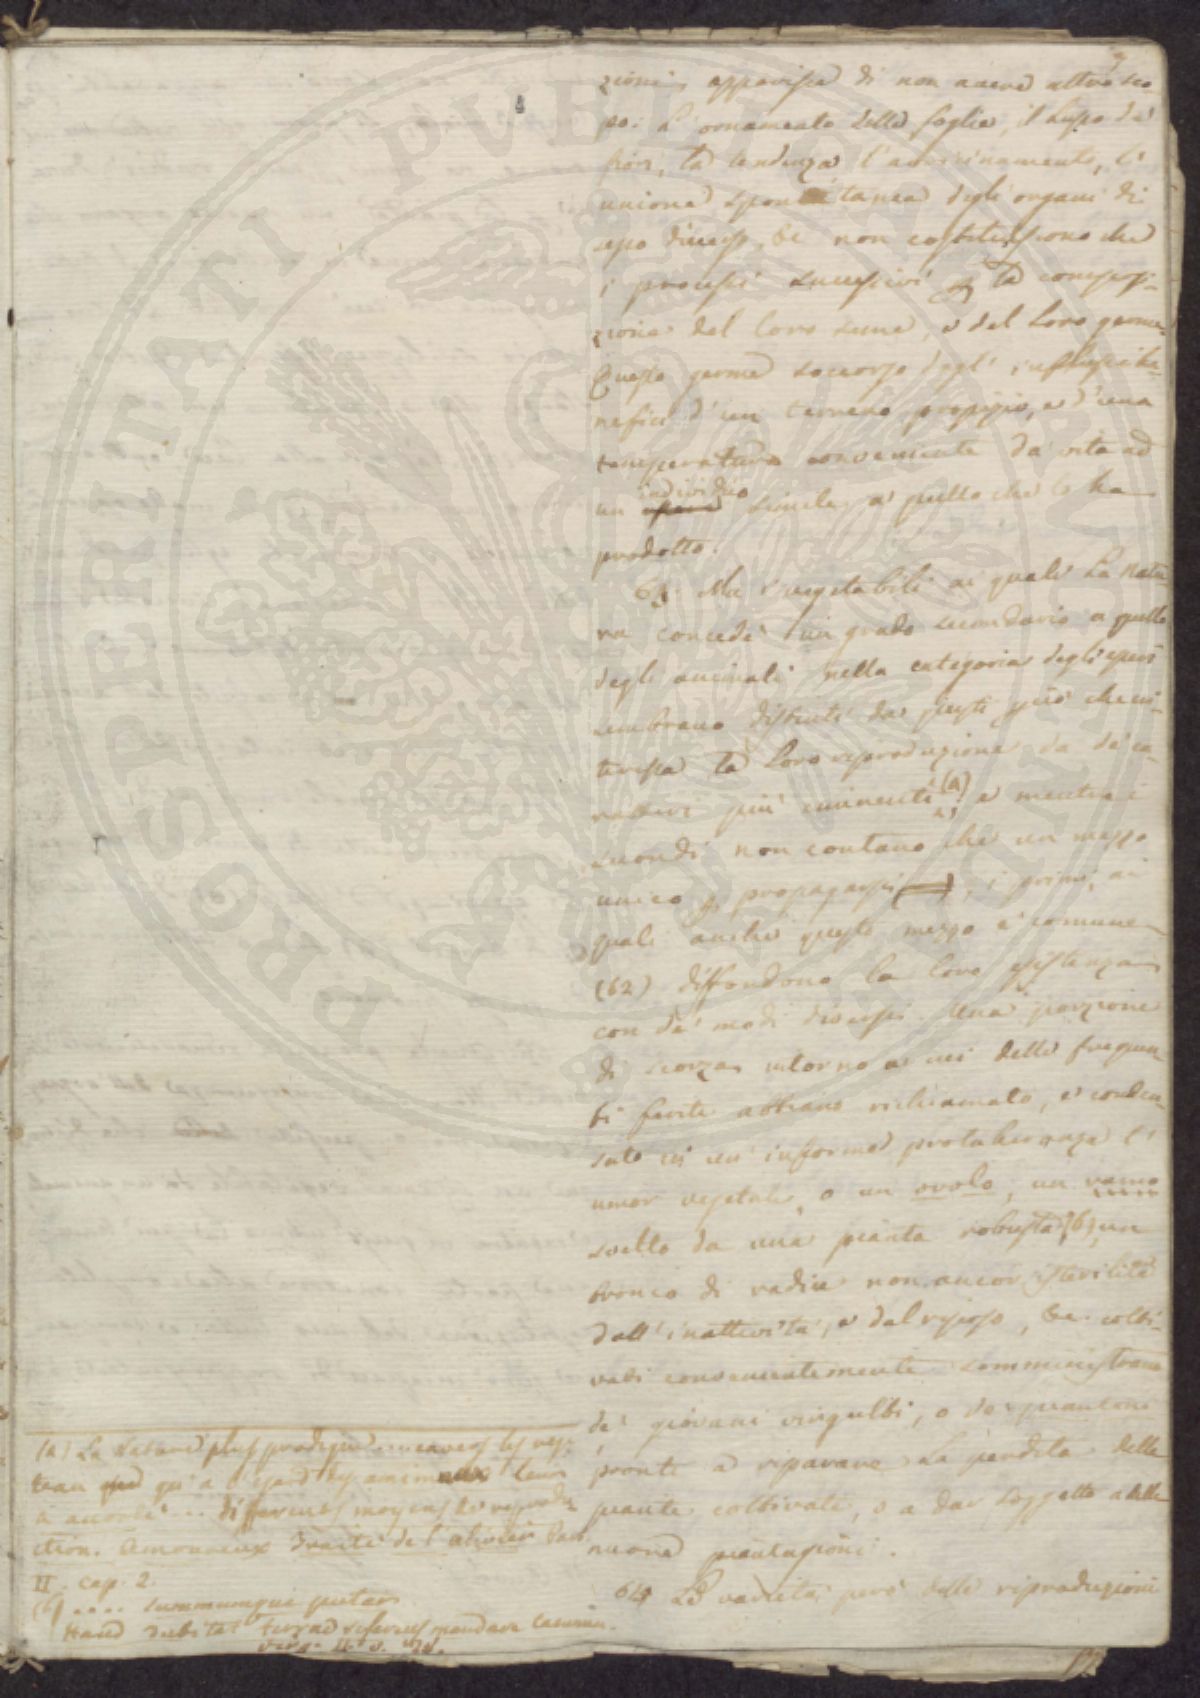 zioni, apparisca di non avere altro sco-
po. L'ornamento delle foglie, il lusso de'
fiori, la tendenza l'avvicinamento, l'
unione spontanea degli organi di
sesso diverso, &c non costituiscono che
i processi successivi la
zione del loro seme, e del loro germe.
Questo germe soccorso degl' influssi be-
nefici d'un terreno propizio, e d'una
temperatura conveniente dà vita ad
un individuo simile a quello che lo ha
prodotto.
63. Ma i vegetabili ai quali la natu-
ra concede un grado secondario a quello
degli animali nella categoria degli esseri
sembrano distinti da questi per ciò che in-
teressa la loro riproduzione da de' ca-
ratteri più eminenti (a), e mentre i
secondi non contano che un mezzo
unico propagarsi, i primi, ai
quali anche questo mezzo è comune
(62) diffondono la loro esistenza
con de' modi diversi. Una porzione
di scorza intorno a cui delle frequen-
ti ferite abbiano richiamato, e conden-
sato in un' informe protuberanza l'
umor vegetale, o un ovolo, un ramo
svelto da una pianta robusta (b), un
tronco di radice non ancor isterilita
dall'inattività, e dal riposo, &c. colti-
vati convenientemente somministrano
de' giovani virgulti, o de' piantoni
pronti a riparare la perdita delle
piante coltivate, o a dar soggetto a delle
nuove piantagioni.
64 Le varietà però delle riproduzioni
(a) La nature plus prodigue envers les vegé-
taux qu'à l'egard des animaux leur
a accordé ... differents moyens de reprodu-
ction. Amoureux Traité de l'olivier Part.
II. cap. 2.
(b) .... summumque putator
Haud dubitat terrae referens mandare cacumen.
Virg. II. v. 28.